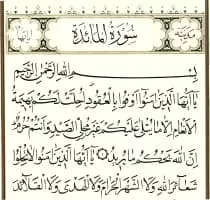 سُورَةُ المَائِدَة
بِسْمِ اللَّهِ الرَّحْمَٰنِ الرَّحِيمِ
يَٰٓأَيُّهَا الَّذِينَ ءَامَنُوٓا أَوْفُوا بِالْعُقُودِ أُحِلَّتْ لَكُم بَهِيمَةُ
الْأَنْعَٰمِ إِلَّا مَا يُتْلَىٰ عَلَيْكُمْ غَيْرَ مُحِلِّي الصَّيْدِ وَأَنتُمْ حُرُمٌ
إِنَّ اللَّهَ يَحْكُمُ مَا يُرِيدُ ۝ يَٰٓأَيُّهَا الَّذِينَ ءَامَنُوا لَا تُحِلُّوا
شَعَٰٓئِرَ اللَّهِ وَلَا الشَّهْرَ الْحَرَامَ وَلَا الْهَدْيَ وَلَا الْقَلَٰٓئِدَ